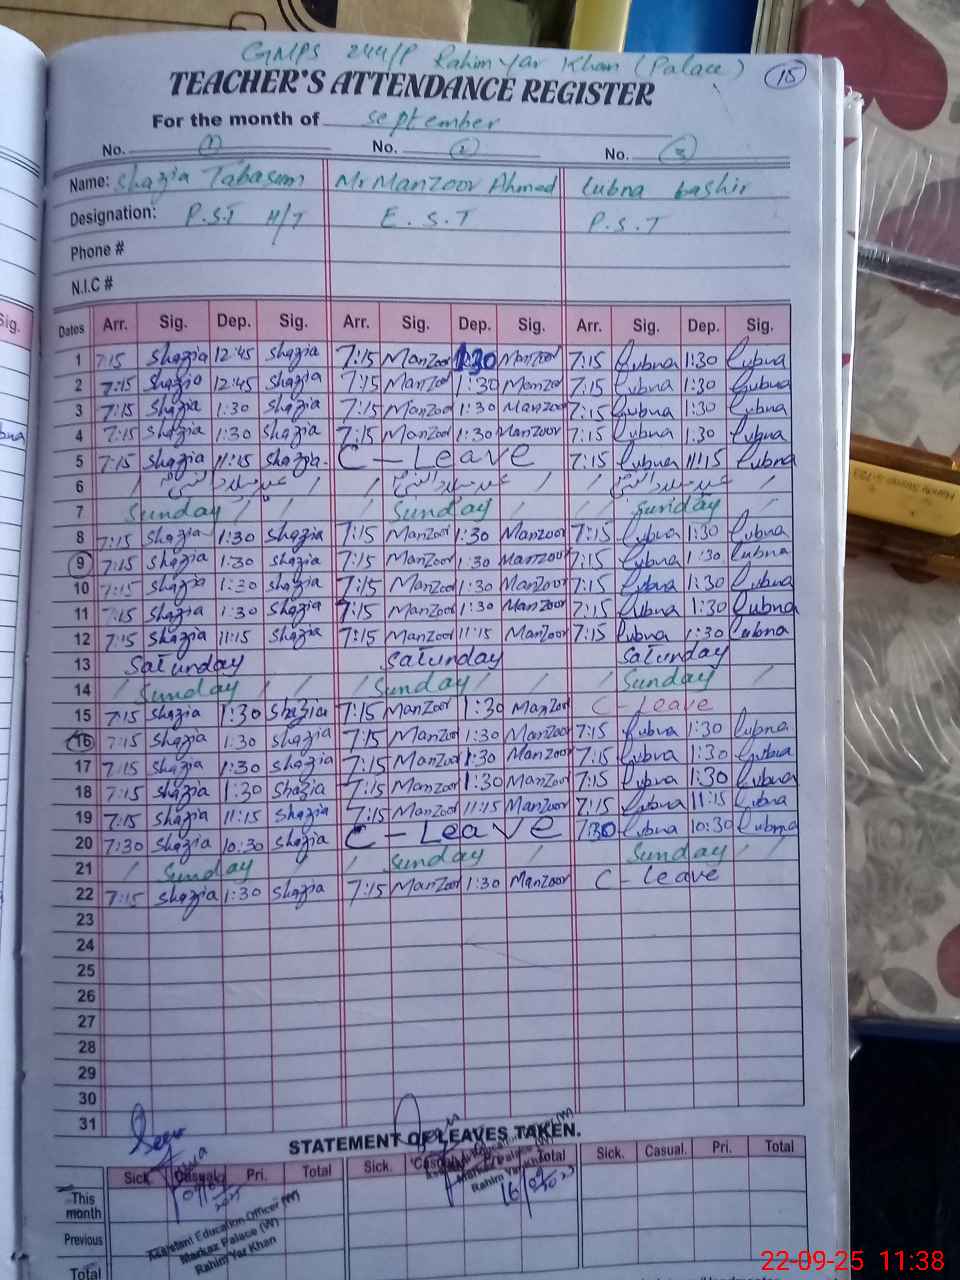 GMPS 244/P Rahim Yar Khan (Palace) 15
TEACHER'S ATTENDANCE REGISTER
For the month of september
No. 1 No. 2 No. 3
Name: Shazia Tabasum Mr Manzoor Ahmed Lubna bashir
Designation: P.S.T H/T E.S.T P.S.T
Phone #
N.I.C #
Sig. Dates Arr. Sig. Dep. Sig. Arr. Sig. Dep. Sig. Arr. Sig. Dep. Sig.
1 7:15 Shazia 12:45 Shazia 7:15 Manzoor 1:30 Manzoor 7:15 Lubna 1:30 Lubna
2 7:15 Shazia 12:45 Shazia 7:15 Manzoor 1:30 Manzoor 7:15 Lubna 1:30 Lubna
3 7:15 Shazia 1:30 Shazia 7:15 Manzoor 1:30 Manzoor 7:15 Lubna 1:30 Lubna
4 7:15 Shazia 1:30 Shazia 7:15 Manzoor 1:30 Manzoor 7:15 Lubna 1:30 Lubna
5 7:15 Shazia 11:15 Shazia C - Leave 7:15 Lubna 11:15 Lubna
6 عید میلاد النبی عید میلاد النبی عید میلاد النبی
7 Sunday Sunday Sunday
8 7:15 Shazia 1:30 Shazia 7:15 Manzoor 1:30 Manzoor 7:15 Lubna 1:30 Lubna
9 7:15 Shazia 1:30 Shazia 7:15 Manzoor 1:30 Manzoor 7:15 Lubna 1:30 Lubna
10 7:15 Shazia 1:30 Shazia 7:15 Manzoor 1:30 Manzoor 7:15 Lubna 1:30 Lubna
11 7:15 Shazia 1:30 Shazia 7:15 Manzoor 1:30 Manzoor 7:15 Lubna 1:30 Lubna
12 7:15 Shazia 11:15 Shazia 7:15 Manzoor 11:15 Manzoor 7:15 Lubna 1:30 Lubna
13 Saturday Saturday Saturday
14 Sunday Sunday Sunday
15 7:15 Shazia 1:30 Shazia 7:15 Manzoor 1:30 Manzoor C - Leave
16 7:15 Shazia 1:30 Shazia 7:15 Manzoor 1:30 Manzoor 7:15 Lubna 1:30 Lubna
17 7:15 Shazia 1:30 Shazia 7:15 Manzoor 1:30 Manzoor 7:15 Lubna 1:30 Lubna
18 7:15 Shazia 1:30 Shazia 7:15 Manzoor 1:30 Manzoor 7:15 Lubna 1:30 Lubna
19 7:15 Shazia 11:15 Shazia 7:15 Manzoor 11:15 Manzoor 7:15 Lubna 11:15 Lubna
20 7:30 Shazia 10:30 Shazia C - Leave 7:30 Lubna 10:30 Lubna
21 Sunday Sunday Sunday
22 7:15 Shazia 1:30 Shazia 7:15 Manzoor 1:30 Manzoor C - Leave
23
24
25
26
27
28
29
30
31
STATEMENT OF LEAVES TAKEN.
Sick. Casual. Pri. Total Sick. Casual. Total Sick. Casual. Pri. Total
This month
Previous
Total
Assistant Education Officer (W)
Markaz Palace (W)
Rahim Yar Khan
Markaz Palace (W)
Rahim Yar Khan
22-09-25 11:38